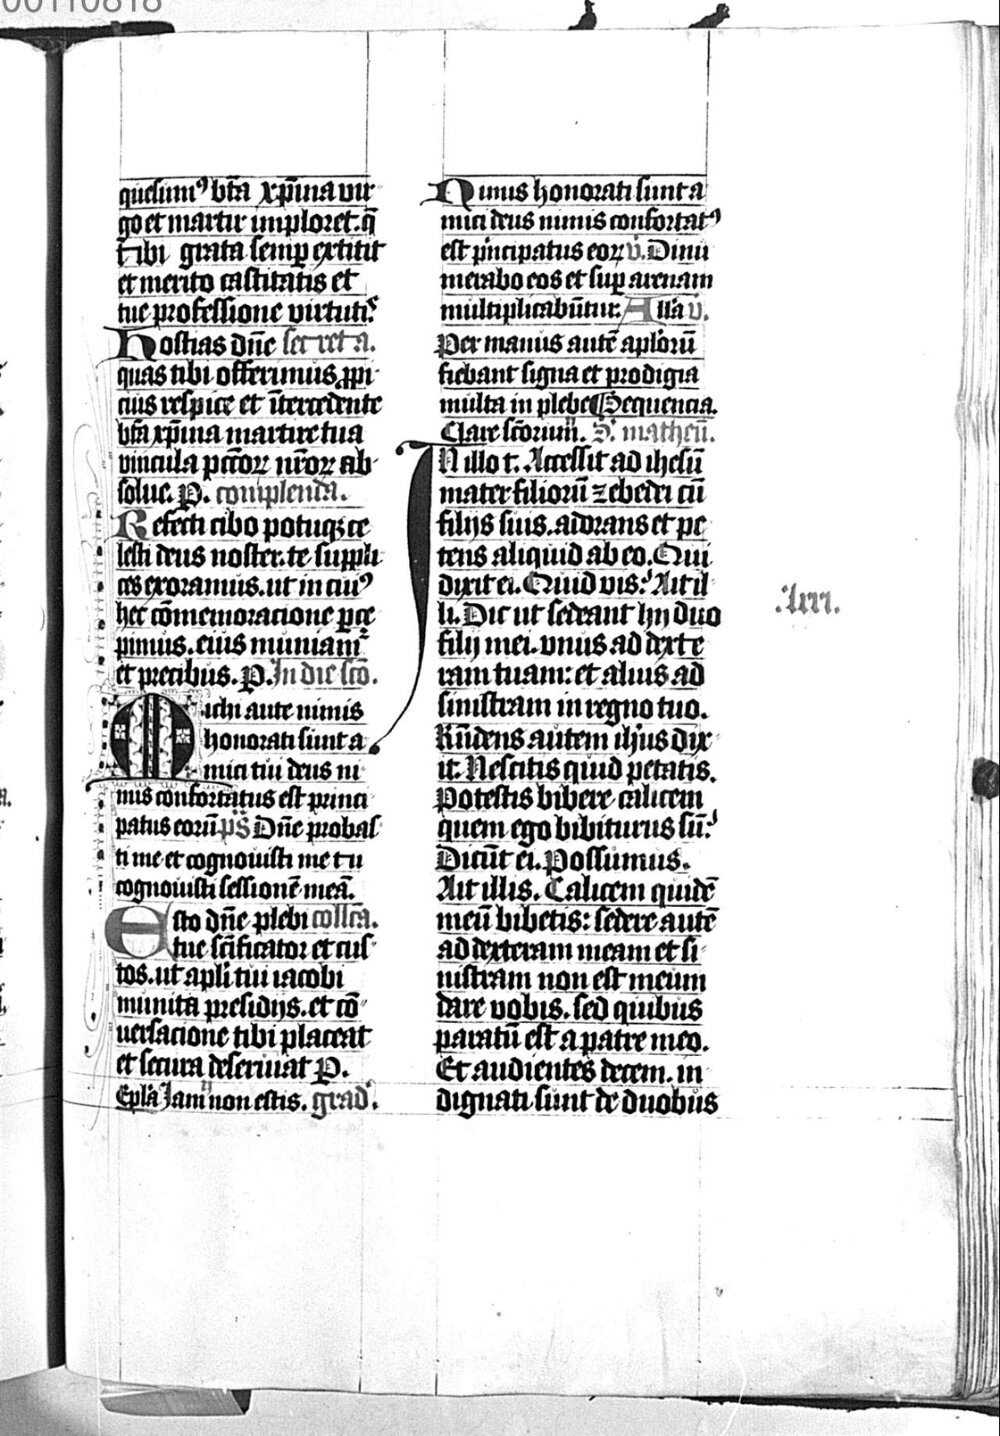 00110818
quesumꝰ bt̄a xp̄ina vir
go et martir imploret. q̄
tibi grata semꝑ extitit
et merito castitatis et
tue professione virtutis.
Hostias dn̄e secreta.
quas tibi offerimus ꝓpi
cius respice et ītercedente
bt̄a xp̄ina martire tua
vincula pcc̄orꝝ nr̄orꝝ ab
solue. P. complenda.
Refecti cibo potuqꝫ ce
lesti deus noster. te suppli
ces exoramus. ut in cuiꝰ
hec cōmemoracione ꝑce
pimus. eius muniamᷓ
et precibus. P. In die sc̄o.
Michi autē nimis
honorati sunt a
mici tui deus ni
mis confortatus est princi
patus eorū p̄s Dn̄e probas
ti me et cognouisti me tu
cognouisti sessionē meā.
Esto dn̄e plebi collc̄a.
tue sc̄ificator et cus
tos. ut apl̄i tui iacobi
munita presidijs. et cō
uersacione tibi placeat
et secura deseruiat P.
Epl̄a Iam non estis. grad.
Nimis honorati sunt a
mici deus nimis confortatꝰ
est pͥncipatus eorꝝ v̄. Dinu
merabo eos et suꝑ arenam
multiplicabūtur. All̄a v̄.
Per manus autē aplorū
fiebant signa et prodigia
multa in plebe Sequencia.
Clare sc̄orum. S. matheū.
IN illo t. Accessit ad ihesū
mater filiorū zebedei cū
filijs suis. adorans et pe
tens aliquid ab eo. Qui
dixit ei. Quid vis? Ait il
li. Dic ut sedeant hij duo
filij mei. vnus ad dexte
ram tuam: et alius ad
sinistram in regno tuo.
Rn̄dens autem ih̄us dix
it. Nescitis quid petatis.
Potestis bibere calicem
quem ego bibiturus sū?
Dicūt ei. Possumus.
Ait illis. Calicem quidē
meū bibetis: sedere autē
ad dexteram meam et si
nistram non est meum
dare vobis. sed quibus
paratū est a patre meo.
Et audientes decem. in
dignati sunt de duobus